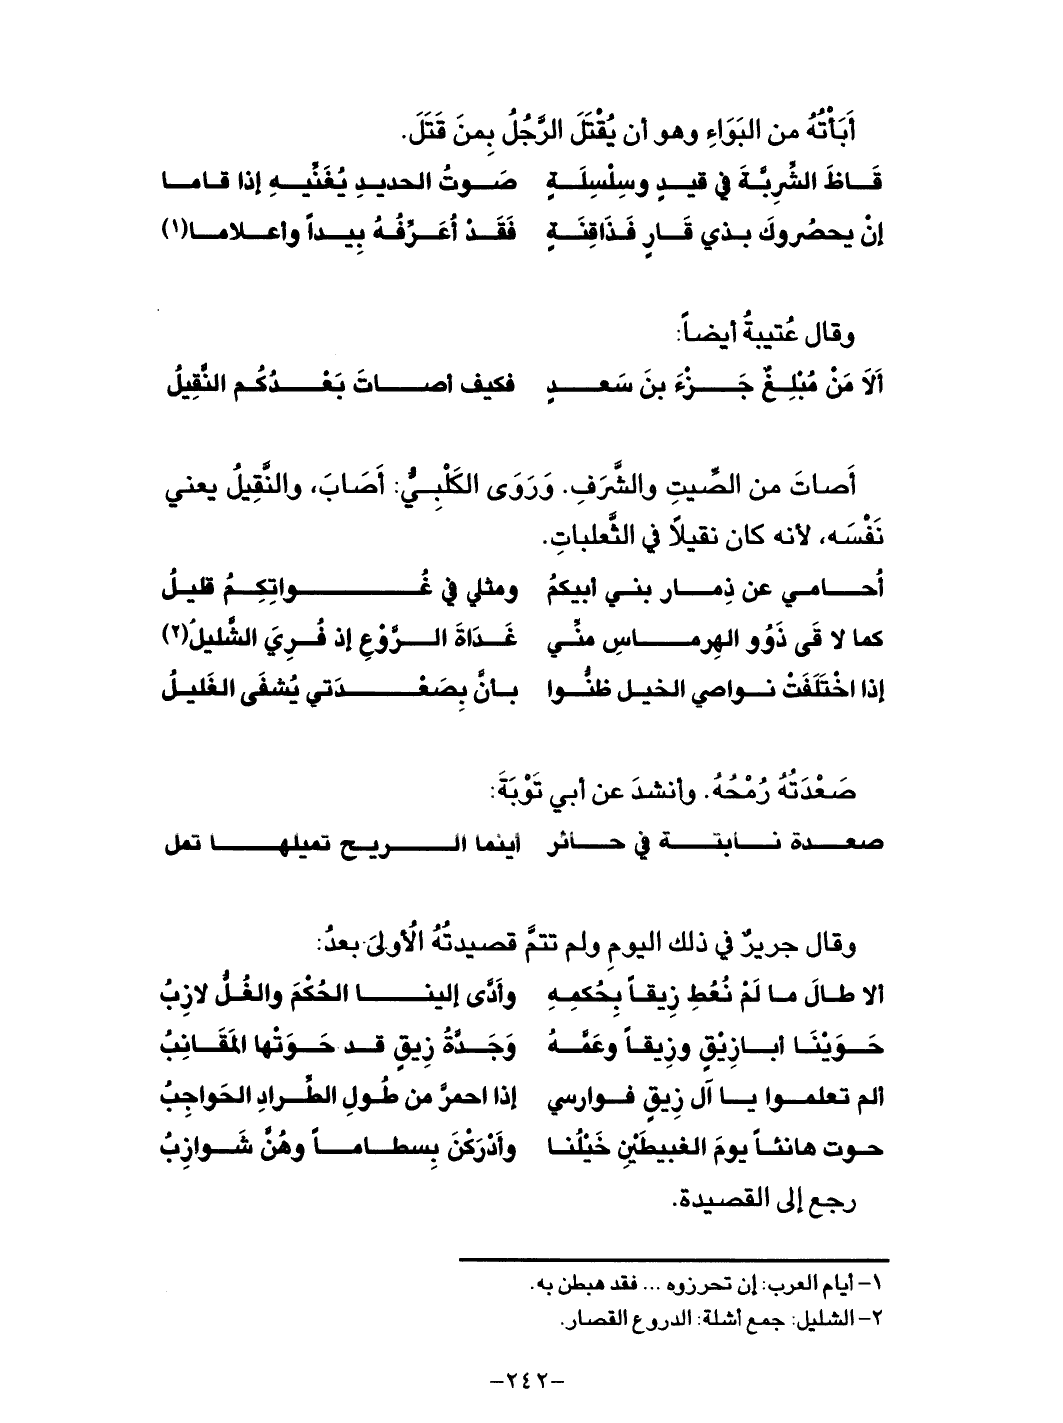 أَبَأْتُهُ من البَوَاءِ وهو أن يُقْتَلَ الرَّجُلُ بِمنَ قَتَلَ.
قَاظَ الشِّرِبَّةَ في قيدٍ وسِلْسِلَةٍ صَوتُ الحديدِ يُغَنِّيهِ إذا قاما
إنْ يحصُروكَ بذي قَارٍ فَذَاقِنَةٍ فَقَدْ أُعَرِّفُهُ بِيداً وأعلاما(١)
وقال عُتيبةُ أيضاً:
ألَا مَنْ مُبْلِغٌ جَزْءَ بنَ سَعدٍ فكيف أصاتَ بَعْدُكُم النَّقِيلُ
أَصاتَ من الصِّيتِ والشَّرَفِ. وَرَوَى الكَلْبِيُّ: أَصَابَ، والنَّقِيلُ يعني
نَفْسَه، لأنه كان نقيلاً في الثَّعلباتِ.
أُحامي عن ذِمار بني أبيكمُ ومثلي في غُواتِكِمُ قليلُ
كما لا قَى ذَوُو الهِرماسِ منِّي غَدَاةَ الرَّوْعِ إذ فُرِيَ الشَّليلُ(٢)
إذا اخْتَلَفَتْ نواصي الخيل ظنُّوا بأنَّ بِصَعْدَتي يُشفَى الغَليلُ
صَعْدَتُهُ رُمْحُهُ. وأنشدَ عن أبي تَوْبَةَ:
صعدة نابتة في حائر أينما الريح تميلها تمل
وقال جريرٌ في ذلك اليومِ ولم تتمَّ قصيدتُهُ الُأولىَ بعدُ:
ألا طالَ ما لَمْ نُعْطِ زِيقاً بِحُكمِهِ وأَدَّى إلينا الحُكْمَ والغُلُّ لازِبُ
حَوَيْنَا أبازِيْقٍ وزِيقاً وعَمَّهُ وَجَدَّةُ زِيقٍ قد حَوَتْها المَقَانِبُ
ألم تعلموا يا آل زِيقٍ فوارسي إذا احمرَّ من طُولِ الطِّرادِ الحَواجِبُ
حوت هانئاً يومَ الغبيطَيْنِ خَيْلُنا وأدْرَكْنَ بِسطاماً وهُنَّ شَوازِبُ
رجع إلى القصيدة.
١- أيام العرب: إن تحرزوه ... فقد هبطن به.
٢- الشليل: جمع أشلة: الدروع القصار.
-٢٤٢-